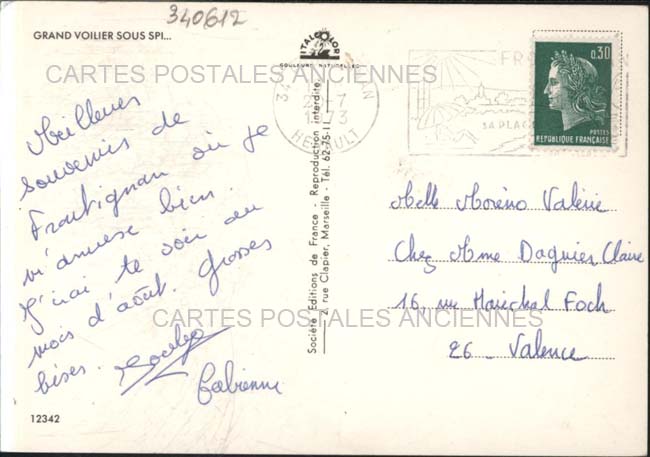 340612
GRAND VOILIER SOUS SPI...
ITALCOLOR
COULEURS NATURELLES
CARTES POSTALES ANCIENNES
Meilleurs
souvenirs de
Frontignan où je
m'amuse bien.
J'irai te voir au
mois d'août. Grosses
bises.
Fabienne
12342
Société Editions de France - Reproduction interdite.
2, rue Clapier, Marseille - Tél. 62-75-11
34
HERAULT
SA PLAGE
0,30
POSTES
REPUBLIQUE FRANÇAISE
Melle Moréno Valérie
Chez Mme Daguier Claire
16, rue Marechal Foch
26 - Valence
CARTES POSTALES ANCIENNES